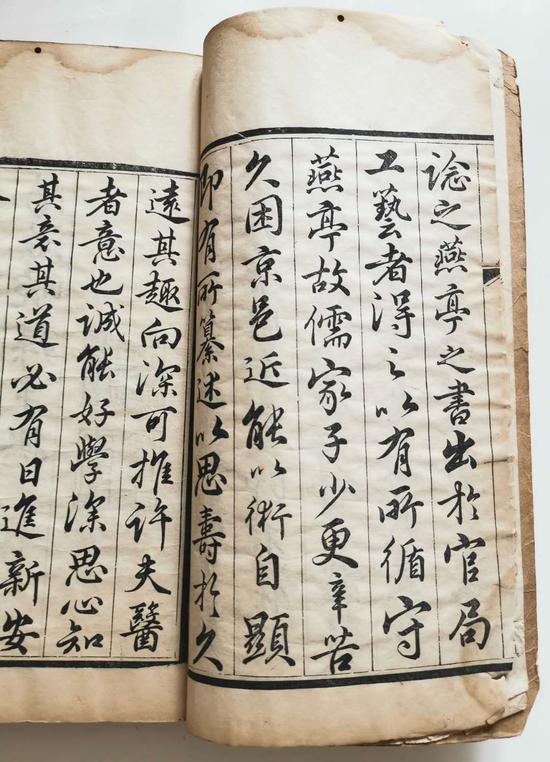 諗之燕亭之書出於官局
工藝者得之以有所循守
燕亭故儒家子少更辛苦
久困京邑近能以術自顯
即有所纂述以思壽於久
遠其趣向深可推许夫醫
者意也诚能好學深思心知
其衷其道必有日進新安